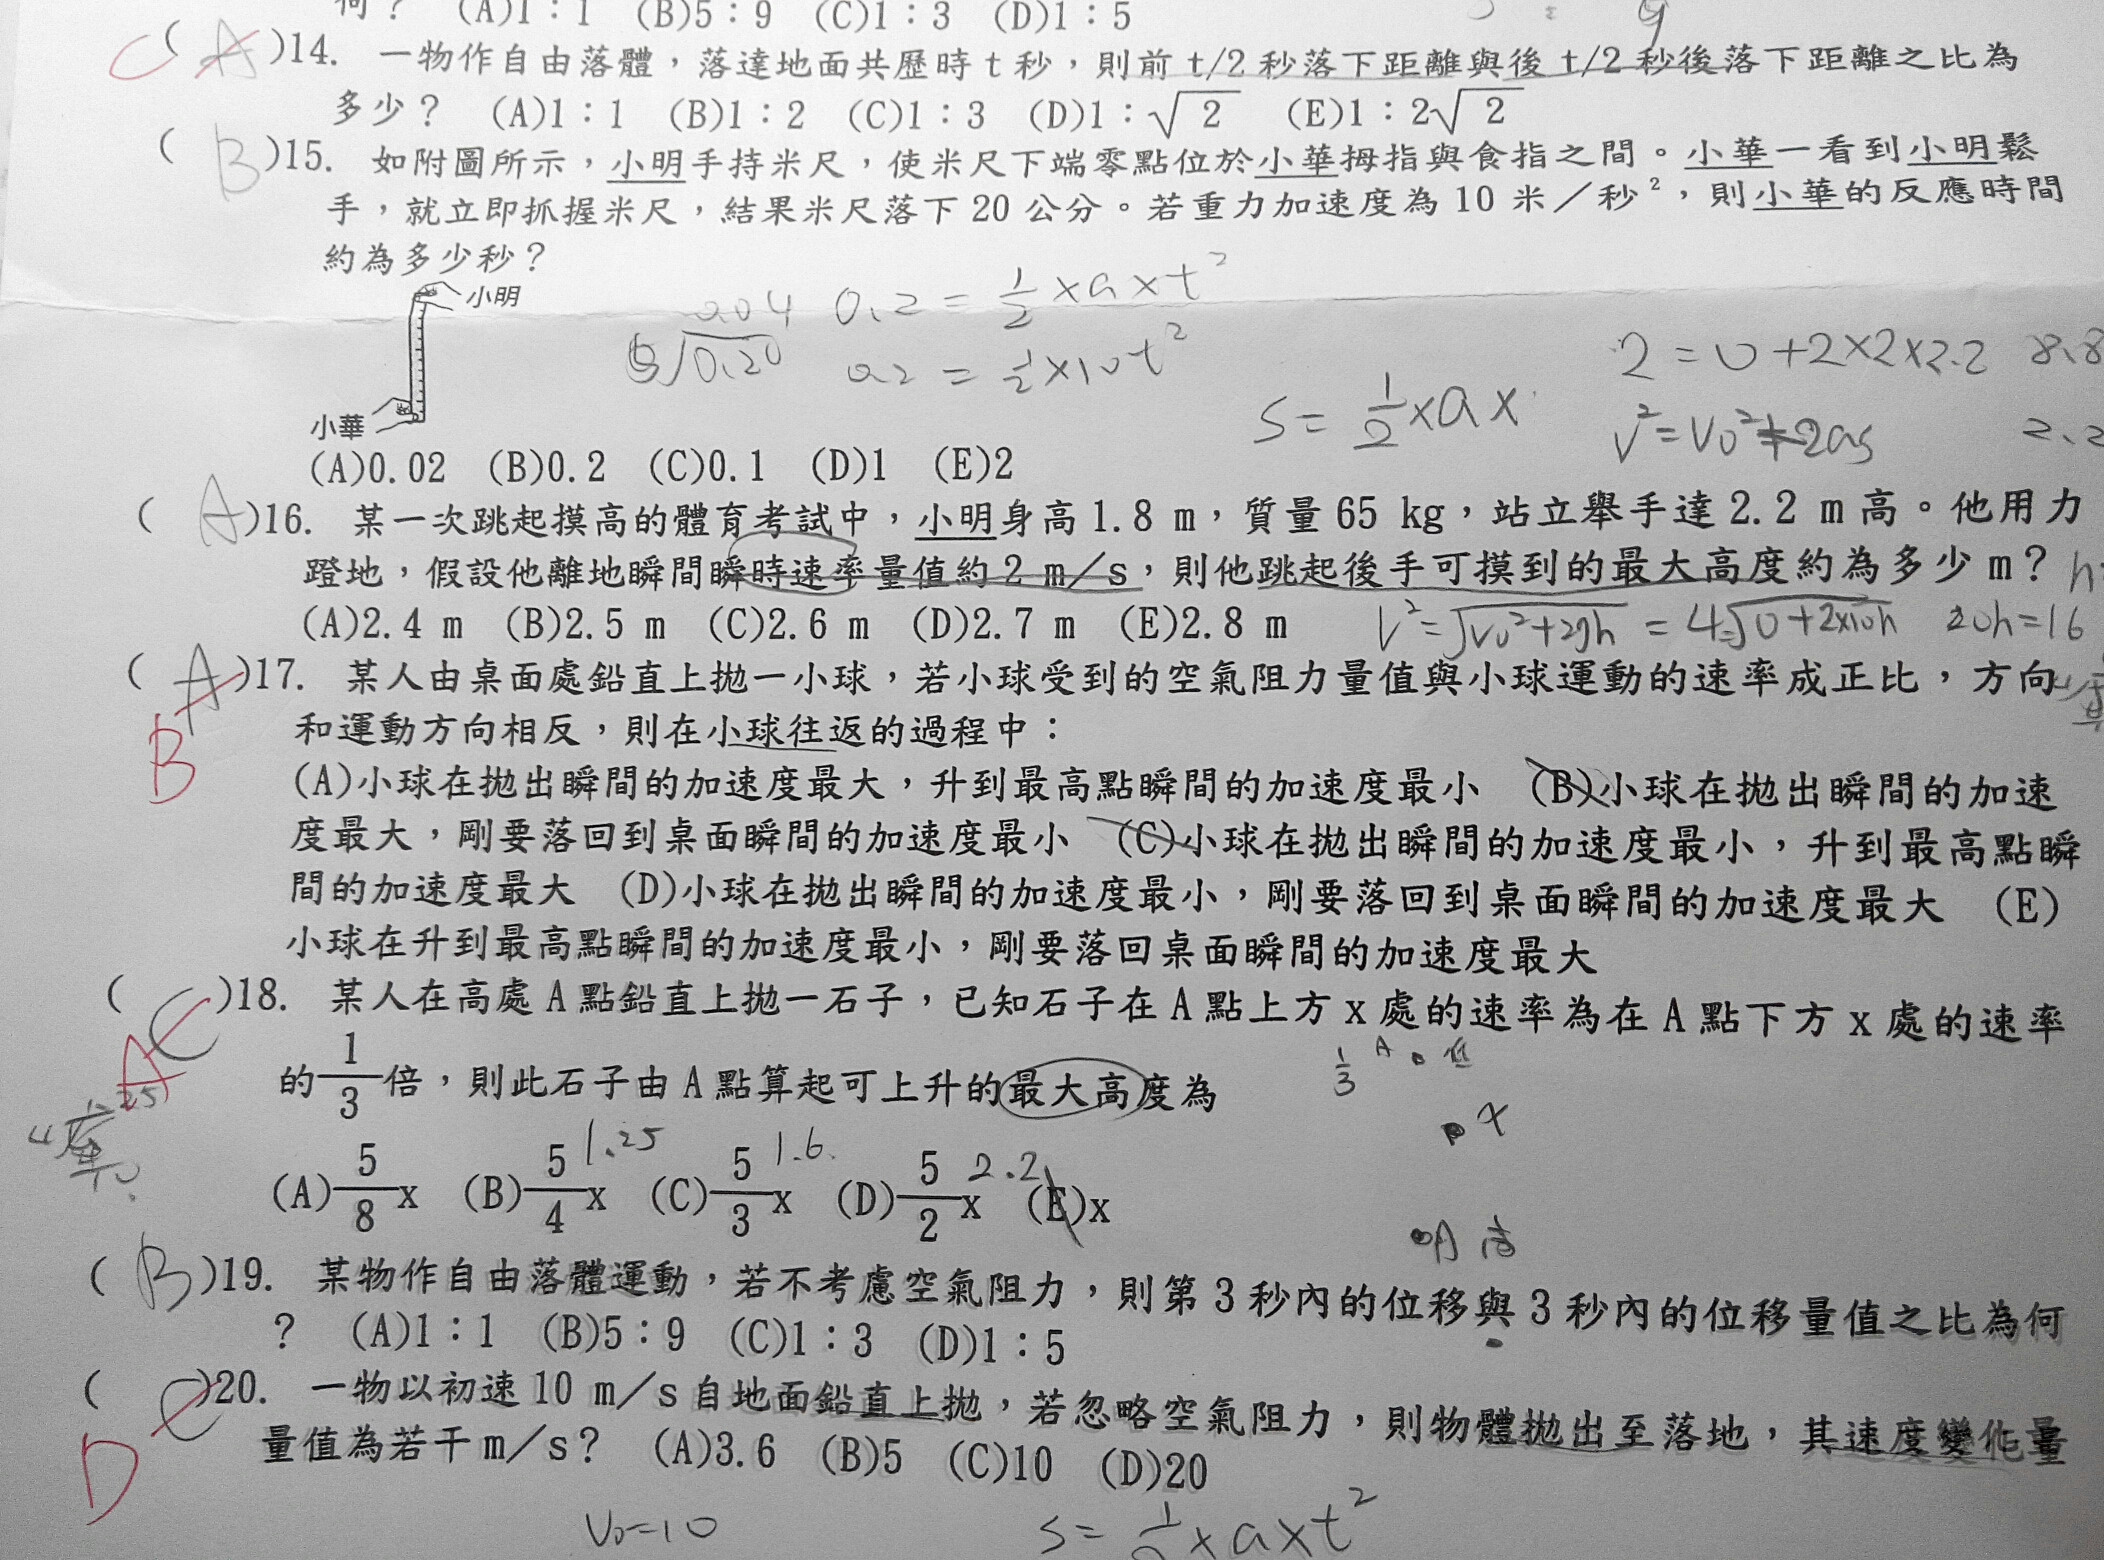 何？ (A)1：1 (B)5：9 (C)1：3 (D)1：5
C ( A )14. 一物作自由落體，落達地面共歷時 t 秒，則前 t/2 秒落下距離與後 t/2 秒後落下距離之比為
多少？ (A)1：1 (B)1：2 (C)1：3 (D)1：√2 (E)1：2√2
( B )15. 如附圖所示，小明手持米尺，使米尺下端零點位於小華拇指與食指之間。小華一看到小明鬆
手，就立即抓握米尺，結果米尺落下 20 公分。若重力加速度為 10 米／秒²，則小華的反應時間
約為多少秒？
小明
0.04 0.2 = 1/2 × a × t²
5√0.20 0.2 = 1/2 × 10 t²
2 = 0 + 2×2×2.2 8.8
S = 1/2 × a ×
V² = V0² + 2as 2.2
小華
(A)0.02 (B)0.2 (C)0.1 (D)1 (E)2
( A )16. 某一次跳起摸高的體育考試中，小明身高 1.8 m，質量 65 kg，站立舉手達 2.2 m 高。他用力
蹬地，假設他離地瞬間瞬時速率量值約 2 m／s，則他跳起後手可摸到的最大高度約為多少 m？ h
(A)2.4 m (B)2.5 m (C)2.6 m (D)2.7 m (E)2.8 m
V² = √V0²+2gh = 4=√0+2×10h 20h=16
( A )17. 某人由桌面處鉛直上拋一小球，若小球受到的空氣阻力量值與小球運動的速率成正比，方向
B 和運動方向相反，則在小球往返的過程中：
(A)小球在拋出瞬間的加速度最大，升到最高點瞬間的加速度最小 (B)小球在拋出瞬間的加速
度最大，剛要落回到桌面瞬間的加速度最小 (C)小球在拋出瞬間的加速度最小，升到最高點瞬
間的加速度最大 (D)小球在拋出瞬間的加速度最小，剛要落回到桌面瞬間的加速度最大 (E)
小球在升到最高點瞬間的加速度最小，剛要落回桌面瞬間的加速度最大
( C )18. 某人在高處 A 點鉛直上拋一石子，已知石子在 A 點上方 x 處的速率為在 A 點下方 x 處的速率
A 的 1/3 倍，則此石子由 A 點算起可上升的最大高度為
1/3 A
x
(A)5/8 x (B)5/4 x (C)5/3 x (D)5/2 x (E)x
1.25 1.6 2.2
A 高
( B )19. 某物作自由落體運動，若不考慮空氣阻力，則第 3 秒內的位移與 3 秒內的位移量值之比為何
？ (A)1：1 (B)5：9 (C)1：3 (D)1：5
( C )20. 一物以初速 10 m／s 自地面鉛直上拋，若忽略空氣阻力，則物體拋出至落地，其速度變化量
D 量值為若干 m／s？ (A)3.6 (B)5 (C)10 (D)20
V0=10 S = 1/2 × a × t²